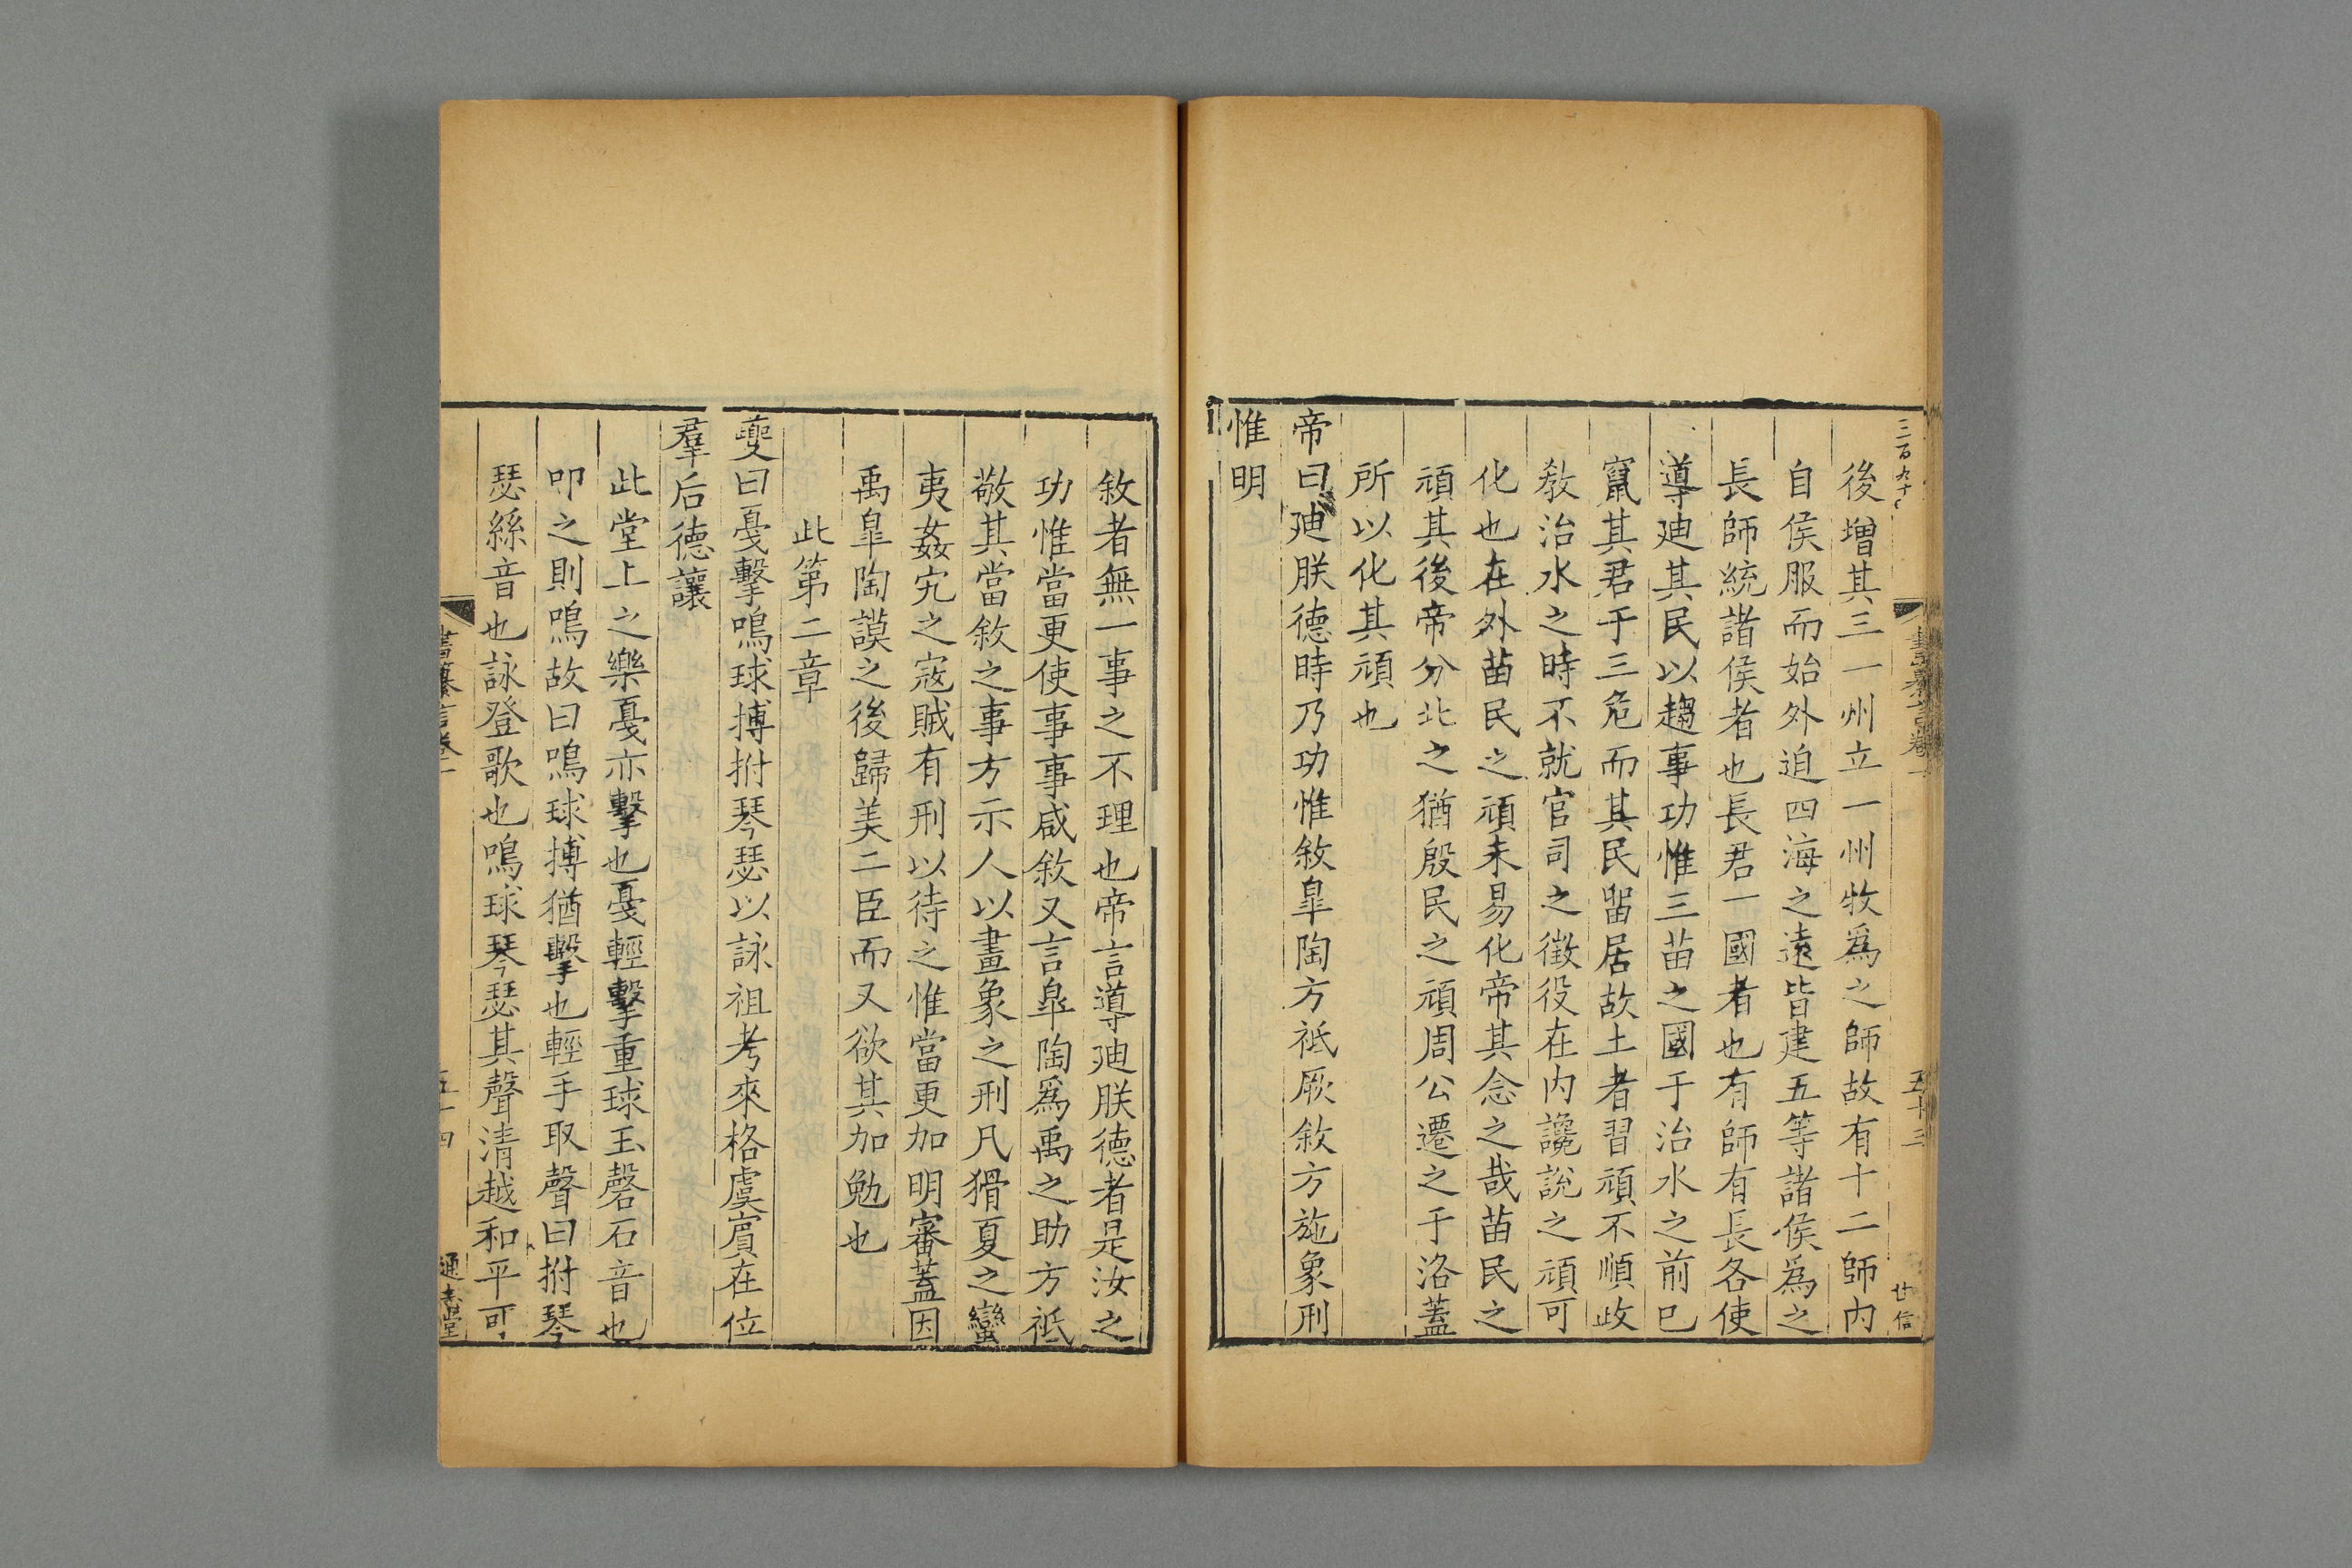 三百九十
書纂言卷一
五十三
廿信
後增其三一州立一州牧爲之師故有十二師内
自侯服而始外迫四海之遠皆建五等諸侯爲之
長師統諸侯者也長君一國者也有師有長各使
導廸其民以趨事功惟三苗之國于治水之前已
竄其君于三危而其民畱居故土者習頑不順政
敎治水之時不就官司之徵役在内讒說之頑可
化也在外苗民之頑未易化帝其念之哉苗民之
頑其後帝分北之猶殷民之頑周公遷之于洛蓋
所以化其頑也
帝曰廸朕德時乃功惟敘臯陶方祇厥敘方施象刑
惟明
敘者無一事之不理也帝言導廸朕德者是汝之
功惟當更使事事咸敘又言臯陶爲禹之助方祇
敬其當敘之事方示人以畫象之刑凡猾夏之蠻
夷姦宄之寇賊有刑以待之惟當更加明審蓋因
禹臯陶謨之後歸美二臣而又欲其加勉也
此第二章
夔曰戞擊鳴球搏拊琴瑟以詠祖考來格虞賓在位
羣后德讓
此堂上之樂戞亦擊也戞輕擊重球玉磬石音也
叩之則鳴故曰鳴球搏猶擊也輕手取聲曰拊琴
瑟絲音也詠登歌也鳴球琴瑟其聲清越和平可
書纂言卷一
五十四
通志堂